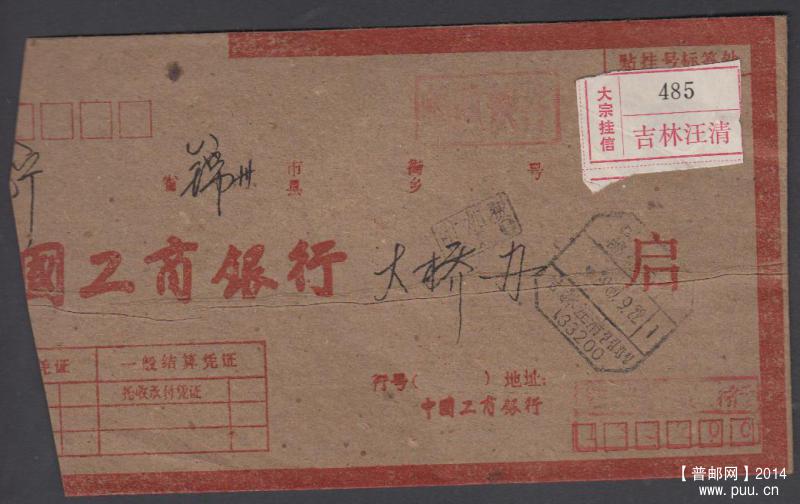 贴挂号标签处
大宗挂信
485
吉林汪清
宁
省 锦州 市县 街乡 号
国工商银行 大桥办 启
133200
凭证 一般结算凭证
托收承付凭证
行号( )地址:
中国工商银行
【普邮网】2014
www.puu.cn